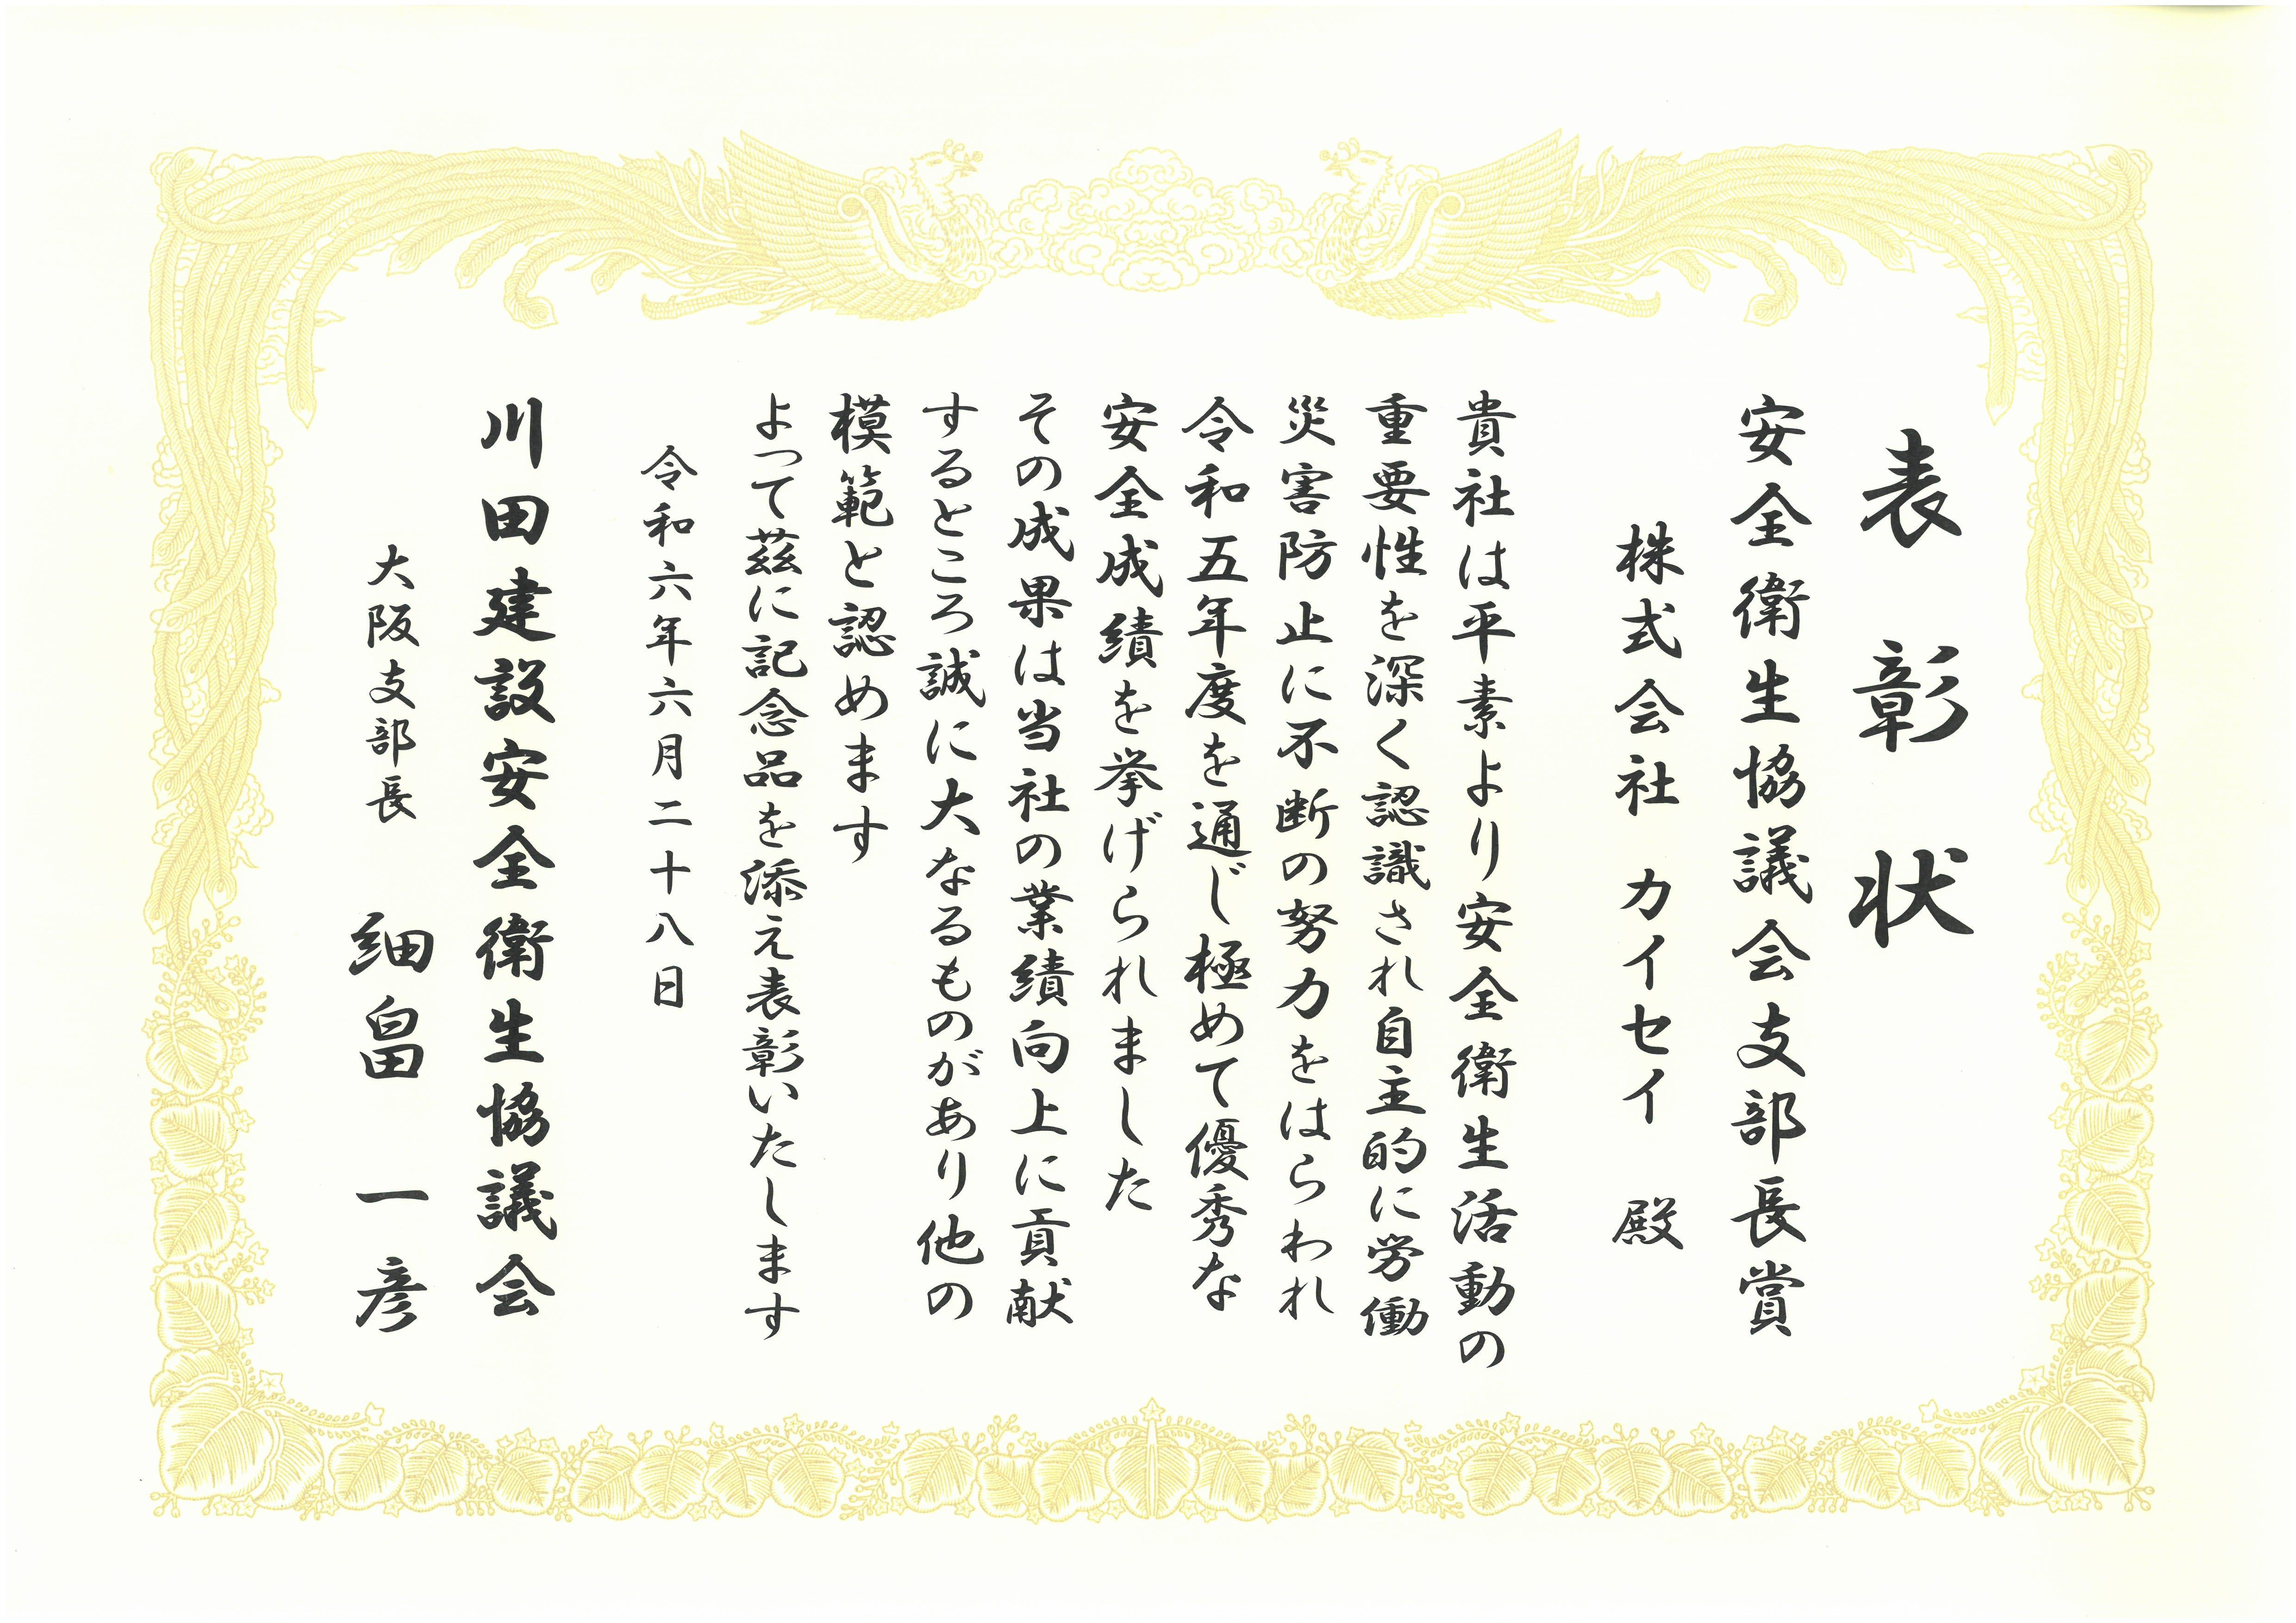 表彰状
安全衛生協議会支部長賞
株式会社 カイセイ 殿
貴社は平素より安全衛生活動の
重要性を深く認識され自主的に労働
災害防止に不断の努力をはらわれ
令和五年度を通じ極めて優秀な
安全成績を挙げられました
その成果は当社の業績向上に貢献
するところ誠に大なるものがあり他の
模範と認めます
よって茲に記念品を添え表彰いたします
令和六年六月二十八日
川田建設安全衛生協議会
大阪支部長 細畠 一彦